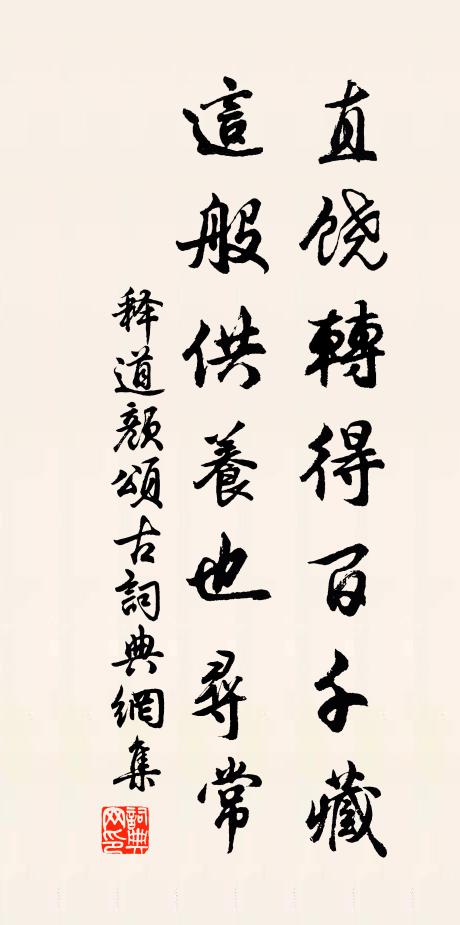 直饶轉得百千藏
這般供養也尋常
释道颜頌古詞典網集
詞典网印